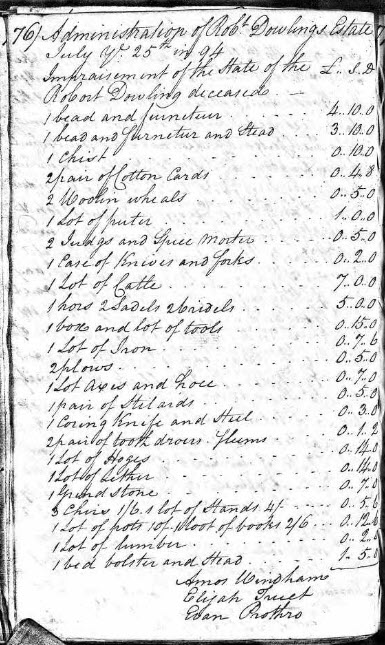 76) Administration of Robt Dowlings Estate
July Ye 25th in 94
Impraisement of the State of the £.. S.. D
Robort Dowling deceased
1 bead and furnetuer 4..10..0
1 bead and furnetur and Stead 3..10..0
1 Chist 0..10..0
2 pair of Cotton Cards 0..4..8
2 Woolin wheals 0..5..0
1 Lot of puter 1..0..0
2 Judgs and Spice Morter 0..5..0
1 Case of Knives and forks 0..2..0
1 Lot of Catle 7..0..0
1 hors 2 Sadels 2 bridels 5..0..0
1 box and lot of tools 0..15..0
1 Lot of Iron 0..7..6
2 plows 0..5..0
1 Lot Axis and hoce 0..7..0
1 pair of Stilards 0..5..0
1 Coring Knife and Steel 0..3..0
2 pair of tooth drors flums 0..1..2
1 Lot of Hoges 0..14..0
1 Lot of Lether 0..14..0
1 Grind Stone 0..7..0
3 Chirs 1/6 1 lot of Stands 4/ 0..5..6
1 Lot of pots 10/ 1 loot of books 2/6 0..12..6
1 Lot of lumber 0..2..0
1 bed bolster and Stead 1..5..0
Amos Windham
Elijah Truet
Evan Prothro